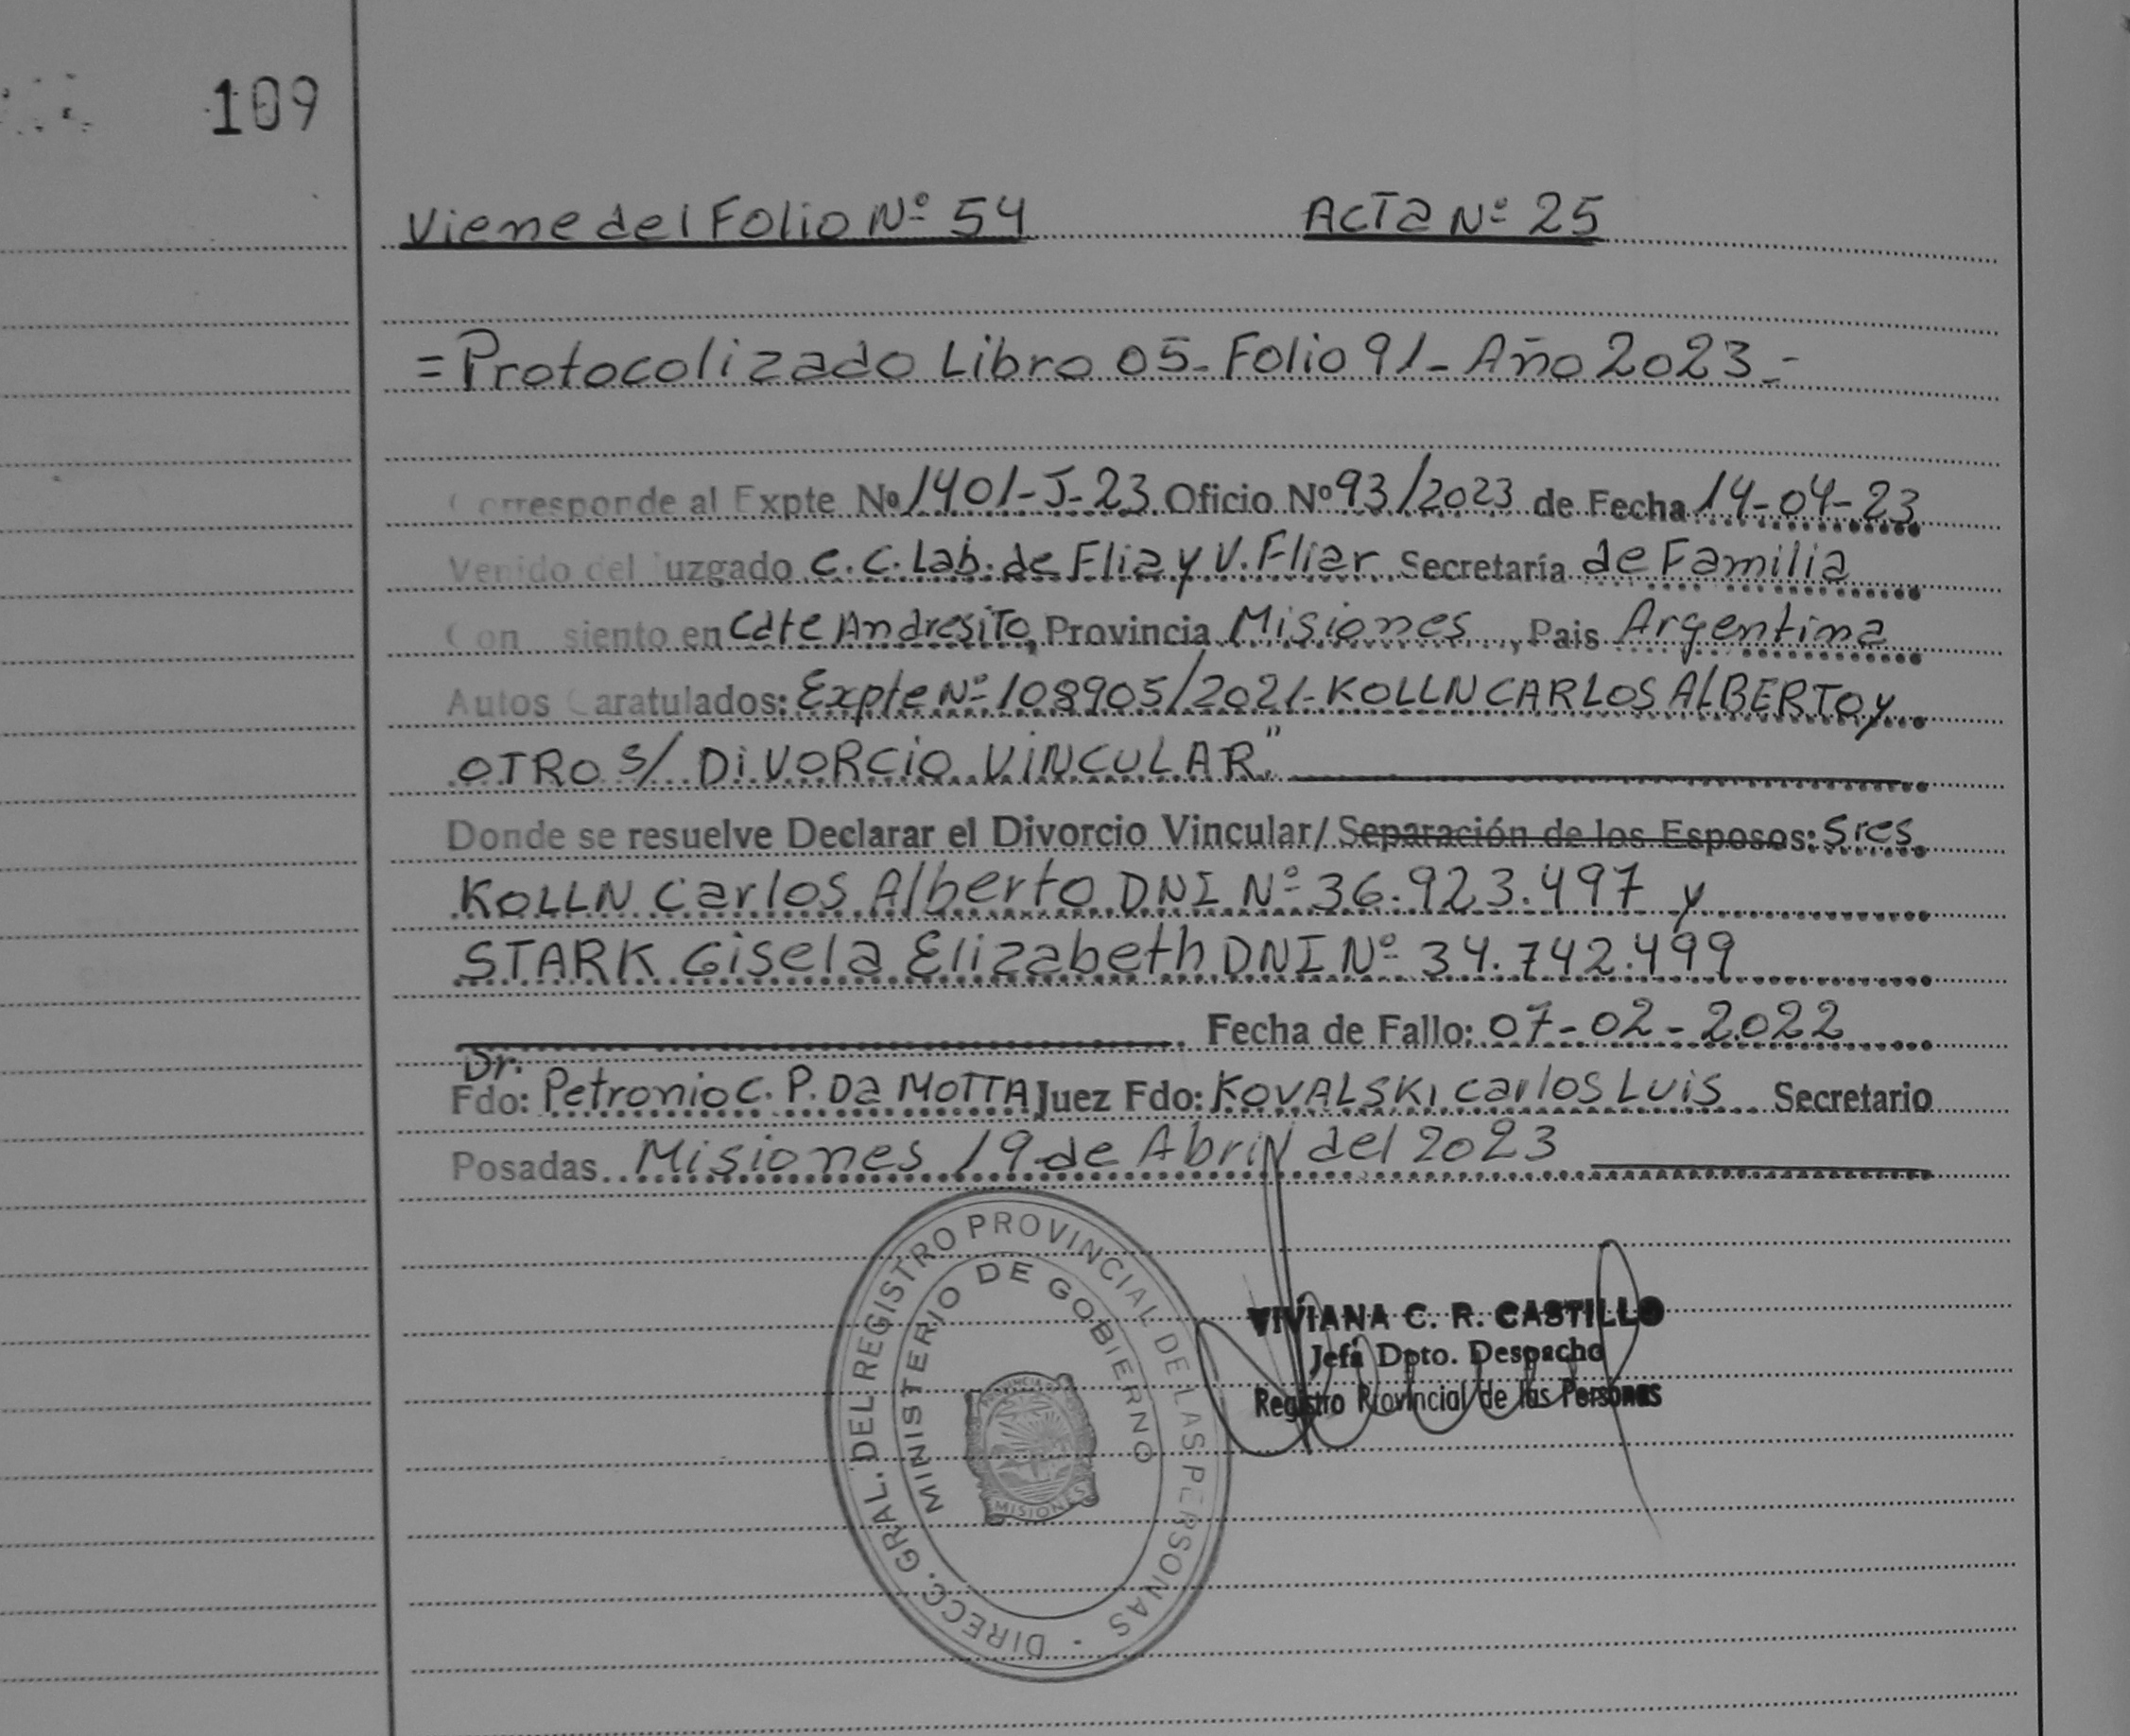 109
Viene del Folio Nº 54 Acta Nº 25
= Protocolizado Libro 05- Folio 91- Año 2023.-
Corresponde al Expte Nº 1401-J-23 Oficio Nº 93/2023 de Fecha 14-04-23
Venido del Juzgado C.C. Lab. de Flia y V. Fliar Secretaría de Familia
Con siento en Cdte Andresito, Provincia Misiones, Pais Argentina
Autos Caratulados: Expte Nº 108905/2021- KOLLN CARLOS ALBERTO y
OTRO S/ DIVORCIO VINCULAR"
Donde se resuelve Declarar el Divorcio Vincular/ Separación de los Esposos: Sres
KOLLN Carlos Alberto DNI Nº 36.923.497 y
STARK Gisela Elizabeth DNI Nº 34.742.499
Fecha de Fallo: 07-02-2022
Fdo: Dr. Petronio C. P. Da MOTTA Juez Fdo: KOVALSKI Carlos Luis Secretario
Posadas Misiones 19 de Abril del 2023
DIRECC. GRAL. DEL REGISTRO PROVINCIAL DE LAS PERSONAS -
MINISTERIO DE GOBIERNO
PROVINCIA
MISIONES
VIVIANA C. R. CASTILLO
Jefa Dpto. Despacho
Registro Provincial de las Personas